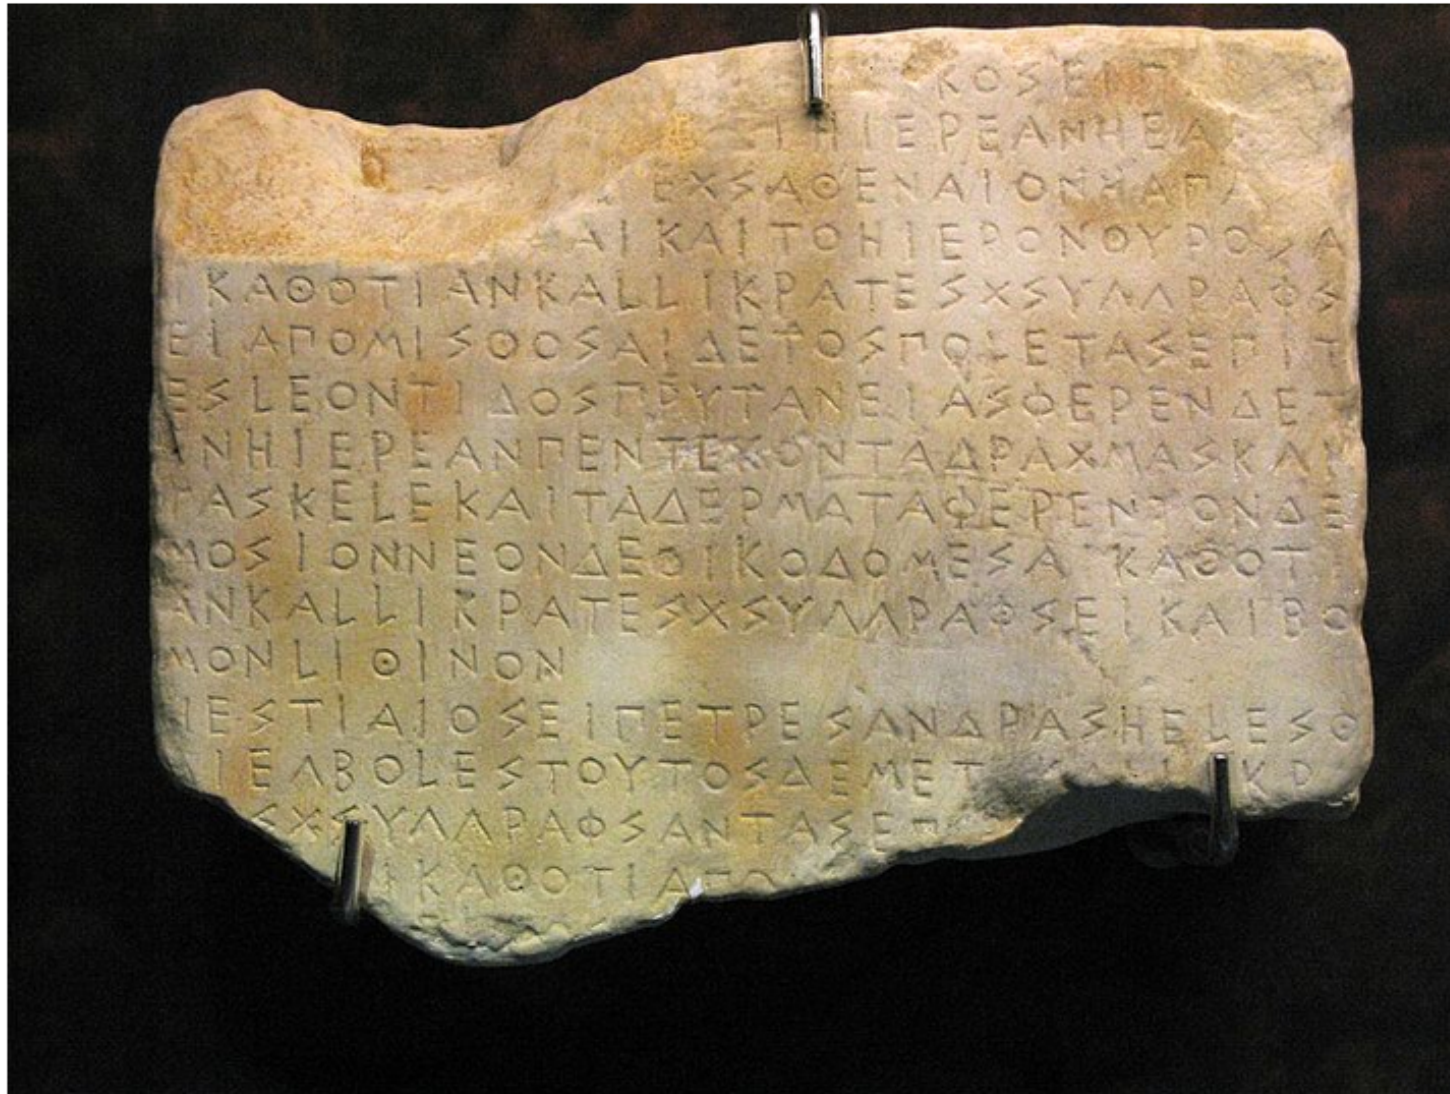 ΚΟΣΕΙΠ
ΗΙΕΡΕΑΝΗΕΑ
ΕΧΣΑΘΕΝΑΙΟΝΗΑΠΑ
ΑΙΚΑΙΤΟΗΙΕΡΟΝΘΥΡΟΣΑ
ΙΚΑΘΟΤΙΑΝΚΑLLΙΚΡΑΤΕΣΧΣΥΛΛΡΑΦΣ
ΕΙΑΠΟΜΙΣΘΟΣΑΙΔΕΤΟΣΠΟLΕΤΑΣΕΠΙΤ
ΕΣLΕΟΝΤΙΔΟΣΠΡΥΤΑΝΕΙΑΣΦΕΡΕΝΔΕΤ
ΕΝΗΙΕΡΕΑΝΠΕΝΤΕΚΟΝΤΑΔΡΑΧΜΑΣΚΑΙ
ΤΑΣΚΕLΕΚΑΙΤΑΔΕΡΜΑΤΑΦΕΡΕΝΤΟΝΔΕ
ΜΟΣΙΟΝΝΕΟΝΔΕΟΙΚΟΔΟΜΕΣΑΙΚΑΘΟΤΙ
ΑΝΚΑLLΙΚΡΑΤΕΣΧΣΥΛΛΡΑΦΣΕΙΚΑΙΒΟ
ΜΟΝLΙΘΙΝΟΝ
ΗΕΣΤΙΑΙΟΣΕΙΠΕΤΡΕΣΑΝΔΡΑΣΗΕLΕΣΘ
ΑΙΕΛΒΟLΕΣΤΟΥΤΟΣΔΕΜΕΤ ΚΑLLΙΚΡ
ΣΧΣΥΛΛΡΑΦΣΑΝΤΑΣΕΠ
ΙΚΑΘΟΤΙΑΠΟ